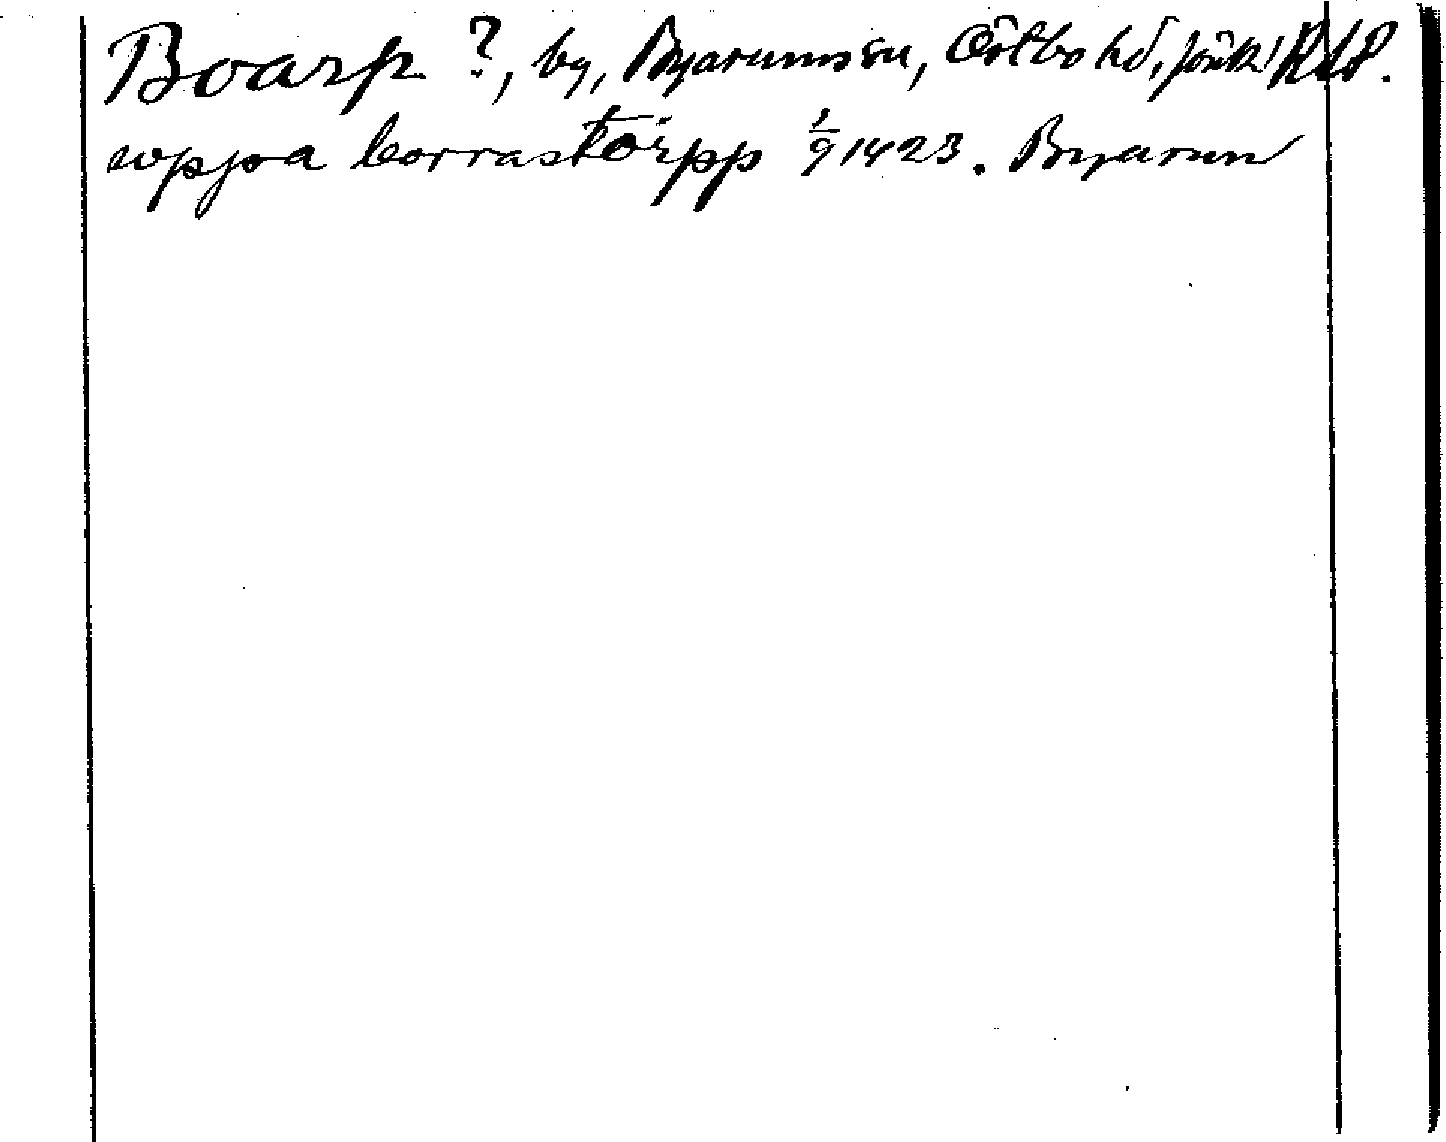 Boarp ?, by, Byarums sn, Östbo hd, Jönk.
uppa borrastörpp 1/9 1423. Byarum